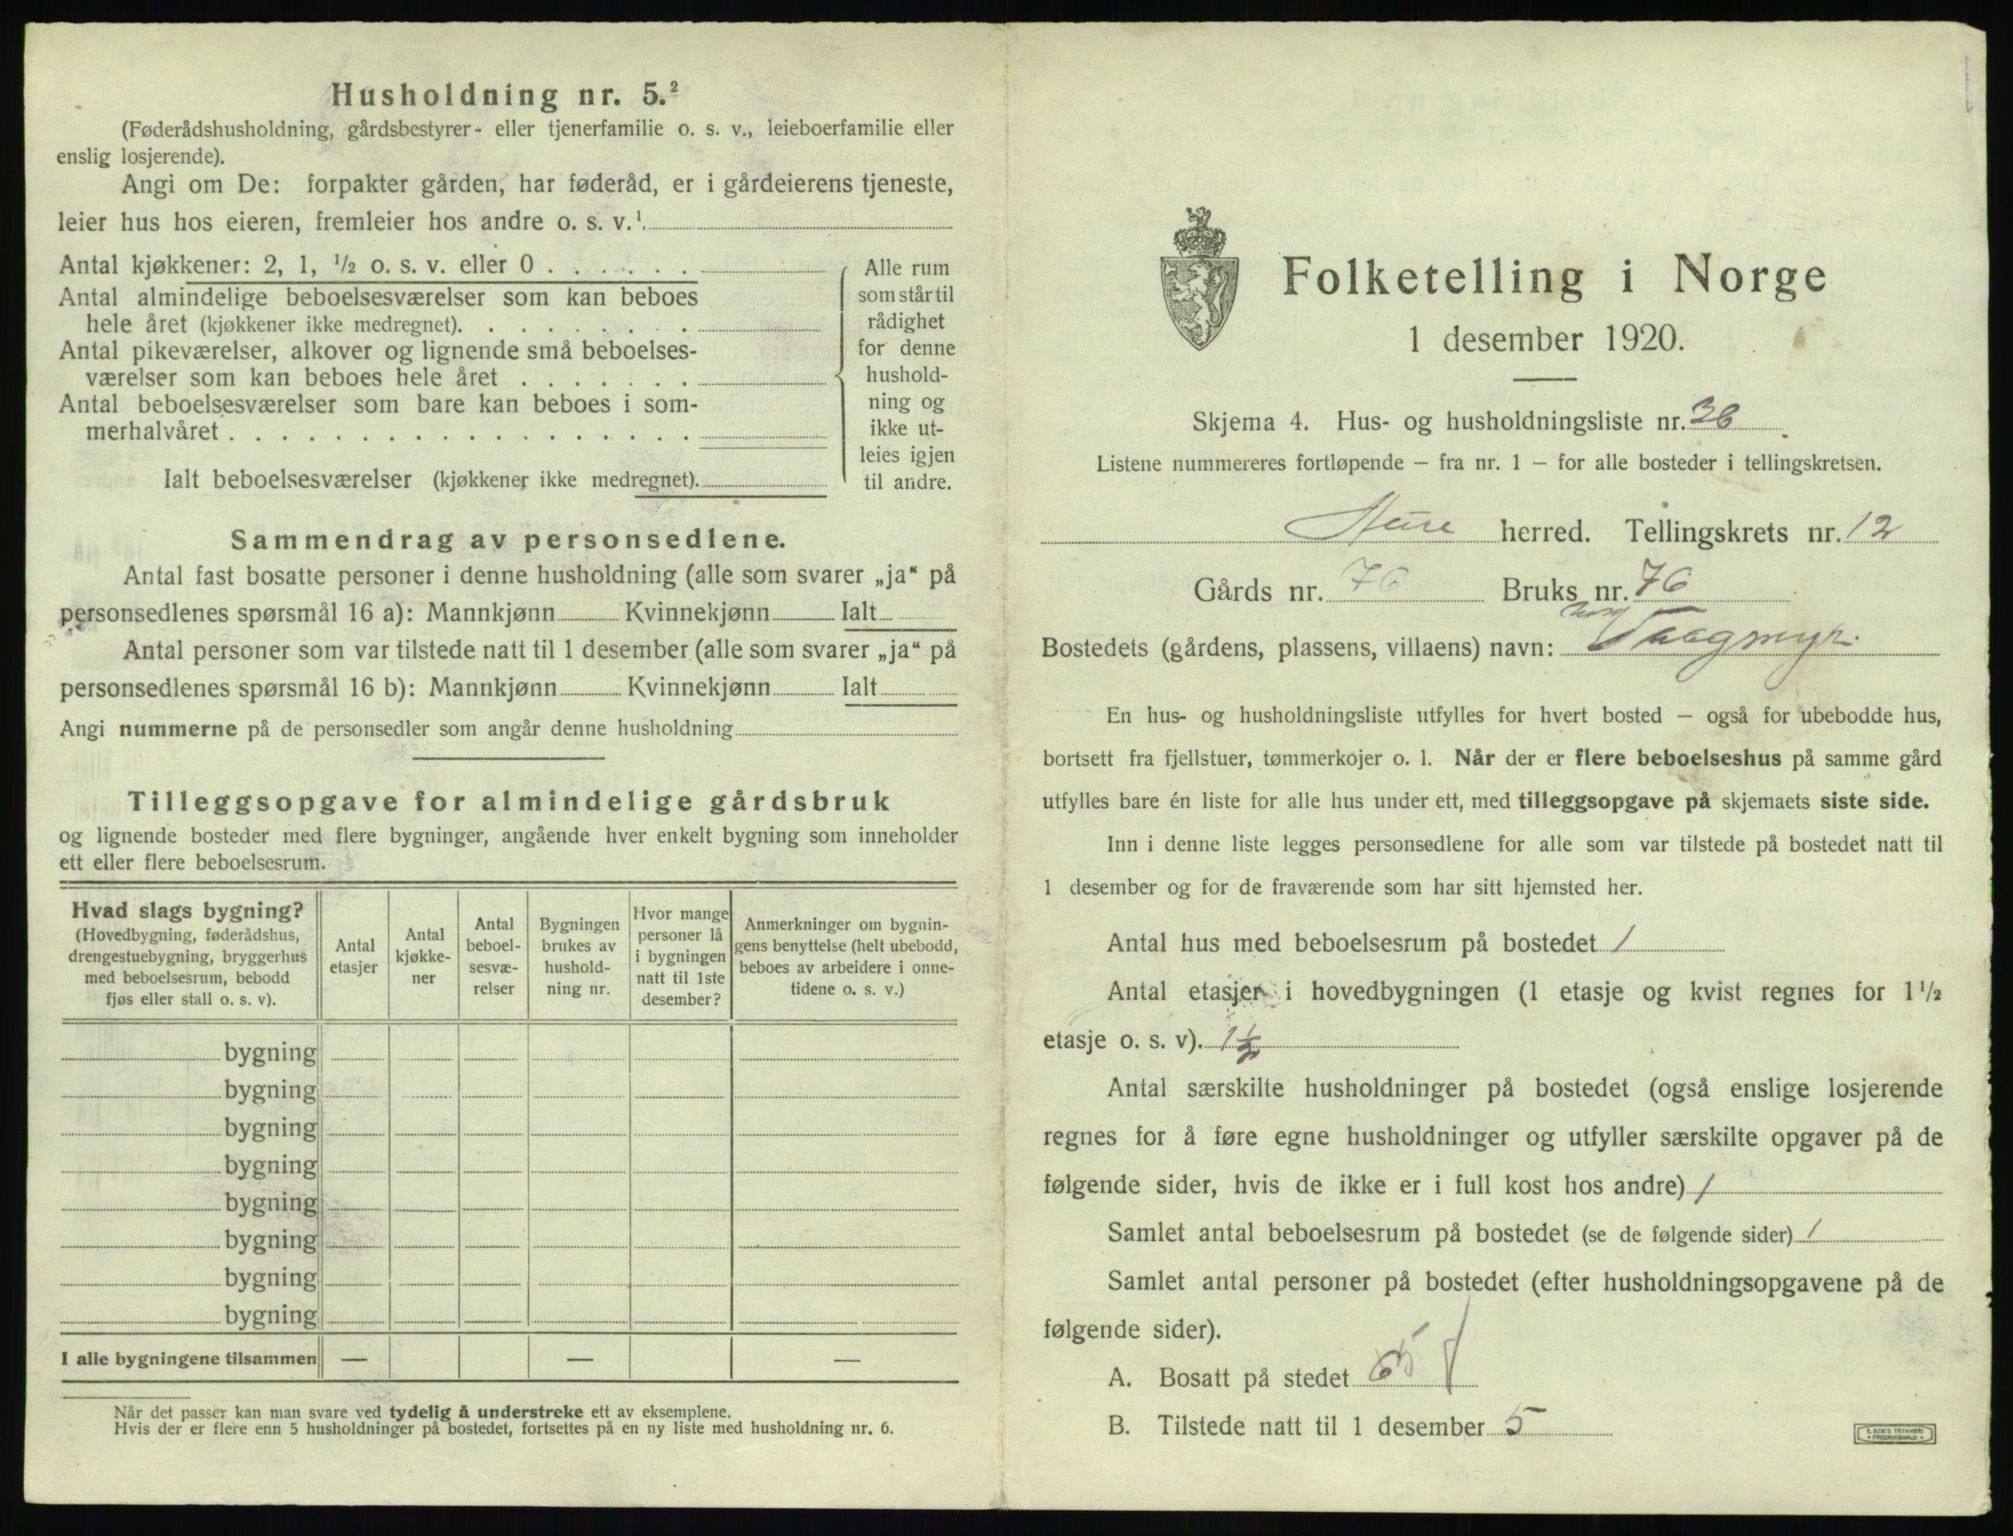 Husholdning nr. 5.²
(Føderådshusholdning, gårdsbestyrer- eller tjenerfamilie o. s. v., leieboerfamilie eller
enslig losjerende).
Angi om De: forpakter gården, har føderåd, er i gårdeierens tjeneste,
leier hus hos eieren, fremleier hos andre o. s. v.¹
Antal kjøkkener: 2, 1, ½ o. s. v. eller 0 . . . . . .
Antal almindelige beboelsesværelser som kan beboes
hele året (kjøkkener ikke medregnet). . . . . . . . .
Antal pikeværelser, alkover og lignende små beboelses-
værelser som kan beboes hele året . . . . . . .
Antal beboelsesværelser som bare kan beboes i som-
merhalvåret . . . . . . . . . . . . . . . . . .
Ialt beboelsesværelser (kjøkkener ikke medregnet).
Alle rum
som står til
rådighet
for denne
hushold-
ning og
ikke ut-
leies igjen
til andre.
Sammendrag av personsedlene.
Antal fast bosatte personer i denne husholdning (alle som svarer „ja“ på
personsedlenes spørsmål 16 a): Mannkjønn Kvinnekjønn Ialt
Antal personer som var tilstede natt til 1 desember (alle som svarer „ja“ på
personsedlenes spørsmål 16 b): Mannkjønn Kvinnekjønn Ialt
Angi nummerne på de personsedler som angår denne husholdning
Tilleggsopgave for almindelige gårdsbruk
og lignende bosteder med flere bygninger, angående hver enkelt bygning som inneholder
ett eller flere beboelsesrum.
Hvad slags bygning?
(Hovedbygning, føderådshus,
drengestuebygning, bryggerhus
med beboelsesrum, bebodd
fjøs eller stall o. s. v).
Antal
etasjer
Antal
kjøkke-
ner
Antal
beboel-
sesvæ-
relser
Bygningen
brukes av
hushold-
ning nr.
Hvor mange
personer lå
i bygningen
natt til 1ste
desember?
Anmerkninger om bygnin-
gens benyttelse (helt ubebodd,
beboes av arbeidere i onne-
tidene o. s. v.)
bygning
bygning
bygning
bygning
bygning
bygning
bygning
bygning
I alle bygningene tilsammen — — —
Når det passer kan man svare ved tydelig å understreke ett av eksemplene.
Hvis der er flere enn 5 husholdninger på bostedet, fortsettes på en ny liste med husholdning nr. 6.
Folketelling i Norge
1 desember 1920.
Skjema 4. Hus- og husholdningsliste nr. 36
Listene nummereres fortløpende – fra nr. 1 – for alle bosteder i tellingskretsen.
Aure herred. Tellingskrets nr. 12
Gårds nr. 76 Bruks nr. 76
Bostedets (gårdens, plassens, villaens) navn: Vaagmyr.
En hus- og husholdningsliste utfylles for hvert bosted – også for ubebodde hus,
bortsett fra fjellstuer, tømmerkojer o. l. Når der er flere beboelseshus på samme gård
utfylles bare én liste for alle hus under ett, med tilleggsopgave på skjemaets siste side.
Inn i denne liste legges personsedlene for alle som var tilstede på bostedet natt til
1 desember og for de fraværende som har sitt hjemsted her.
Antal hus med beboelsesrum på bostedet 1
Antal etasjer i hovedbygningen (1 etasje og kvist regnes for 1½
etasje o. s. v). 1½
Antal særskilte husholdninger på bostedet (også enslige losjerende
regnes for å føre egne husholdninger og utfyller særskilte opgaver på de
følgende sider, hvis de ikke er i full kost hos andre) 1
Samlet antal beboelsesrum på bostedet (se de følgende sider) 1
Samlet antal personer på bostedet (efter husholdningsopgavene på de
følgende sider).
A. Bosatt på stedet 6 5
B. Tilstede natt til 1 desember 5
E. SEM'S TRYKKERI
FREDRIKSHALD